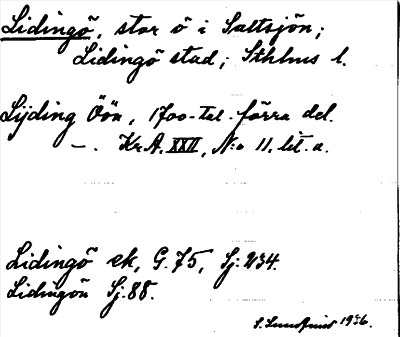 Lidingö, stor ö i Saltsjön;
Lidingö stad; Sthlms l.
Lijding Öön, 1700-tal. förra del.
–. Kr.A. XXII, N:o 11. lit. a.
Lidingö ek, G. 75, Sj. 234.
Lidingön Sj. 88.
S. 1936.